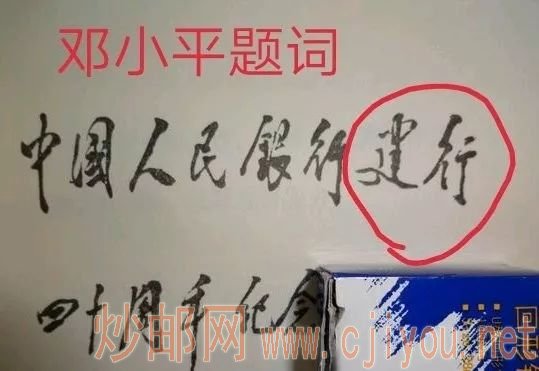 邓小平题词
中国人民银行建行
四十周年纪念
炒邮网 www.cjiyou.net